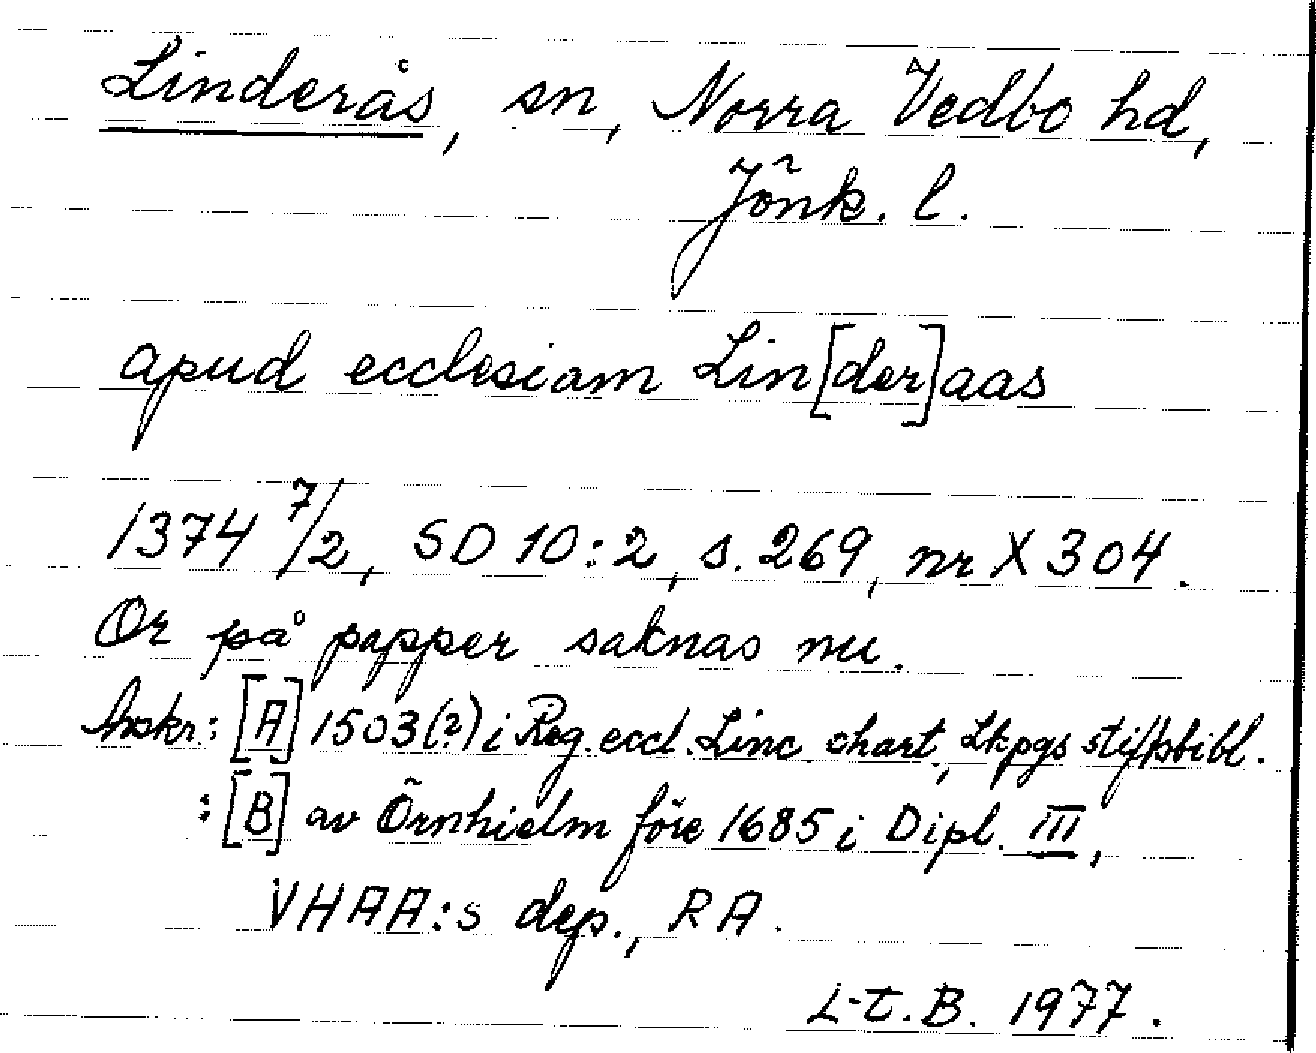 Linderås, sn, Norra Vedbo hd,
Jönk. l.
apud ecclesiam Lin[der]aas
1374 7/2, SD 10:2, s. 269, nr X 304.
Or på papper saknas nu.
Avskr: [A] 1503(?) i Reg. eccl. Linc. chart., Lkpgs stiftsbibl.
: [B] av Örnhielm före 1685 i Dipl. III,
VHAA:s dep., RA.
L-t. B. 1977.